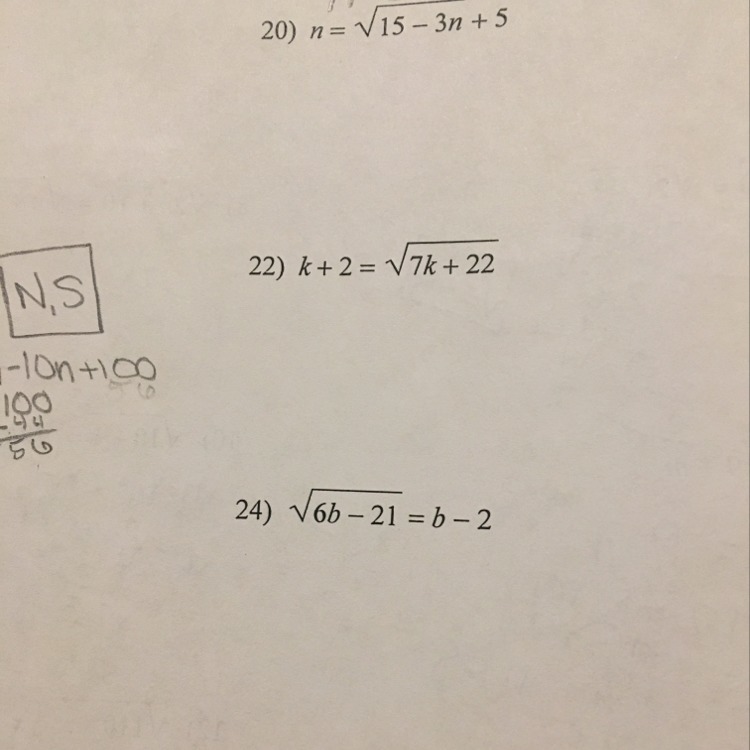 20) n = √15 − 3n + 5
22) k + 2 = √7k + 22
N.S
-10n+100
100
-44
56
24) √6b − 21 = b − 2